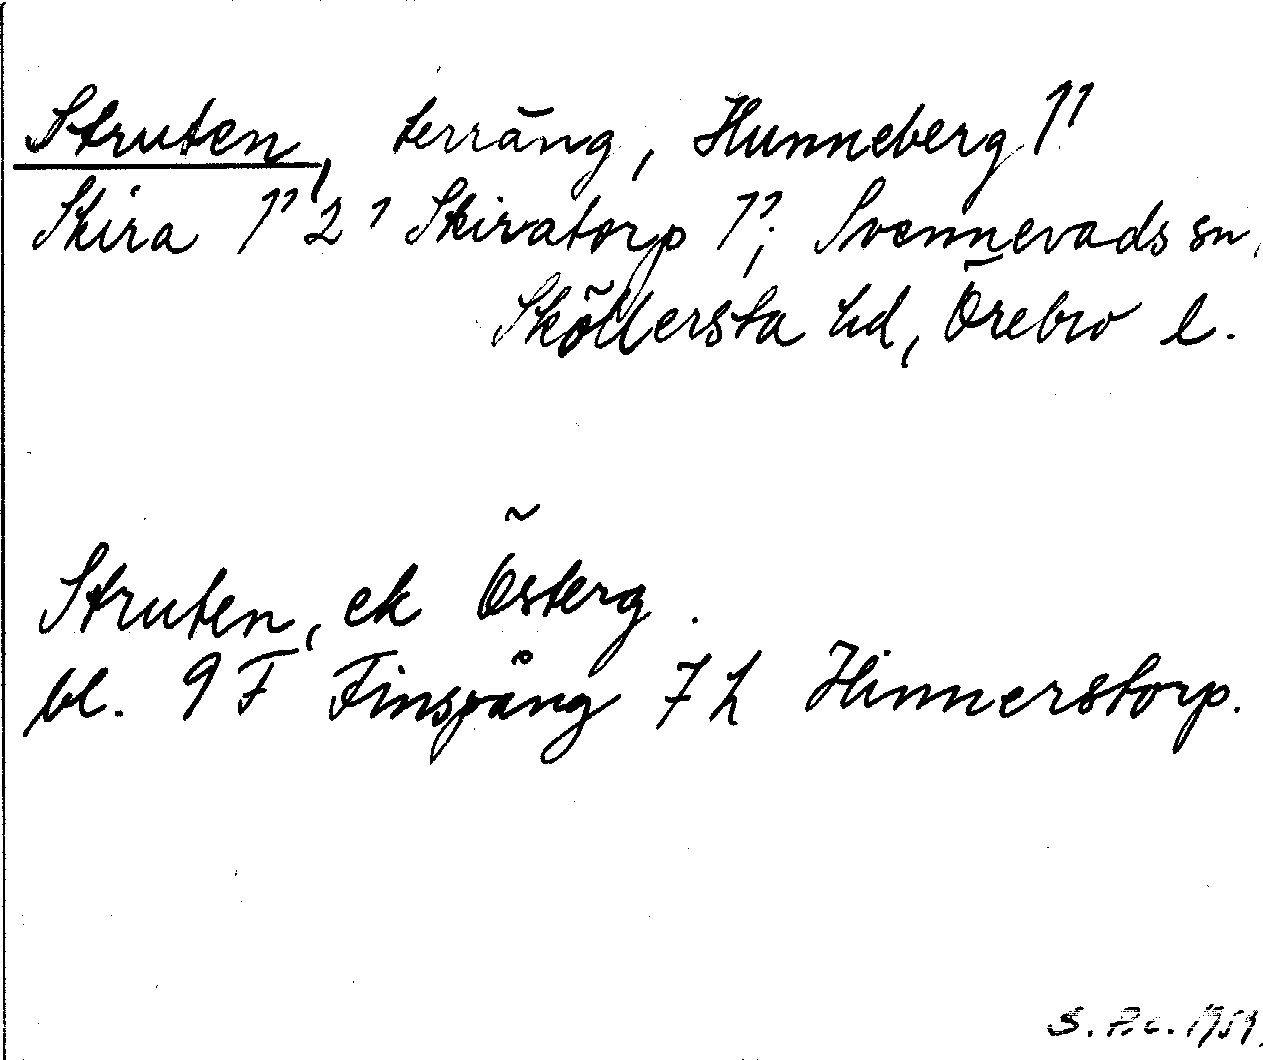 Struten, terräng, Hunneberg 1¹
Skira 1¹ 2¹ Skiratorp 1¹; Svennevads sn,
Sköllersta hd, Örebro l.
Struten, ek Österg.
bl. 9 F Finspång 7 h Hinnerstorp.